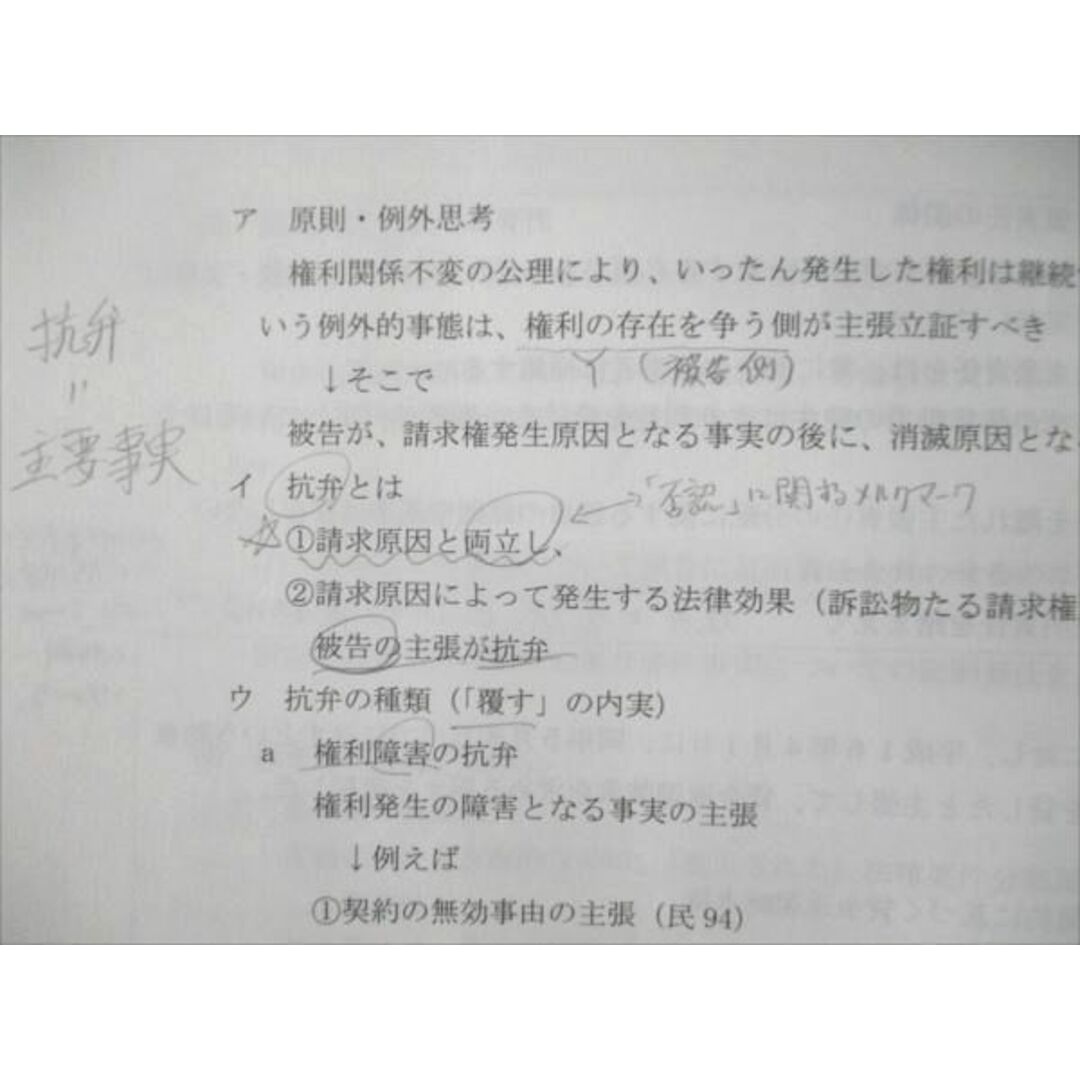 ア 原則・例外思考
権利関係不変の公理により、いったん発生した権利は継続
いう例外的事態は、権利の存在を争う側が主張立証すべき
Y(被告側)
↓そこで
被告が、請求権発生原因となる事実の後に、消滅原因とな
抗弁
〃
主要事実
イ 抗弁とは
「否認」に関するメルクマーク
☆①請求原因と両立し、
②請求原因によって発生する法律効果(訴訟物たる請求権
被告の主張が抗弁
ウ 抗弁の種類(「覆す」の内実)
a 権利障害の抗弁
権利発生の障害となる事実の主張
↓例えば
①契約の無効事由の主張(民94)